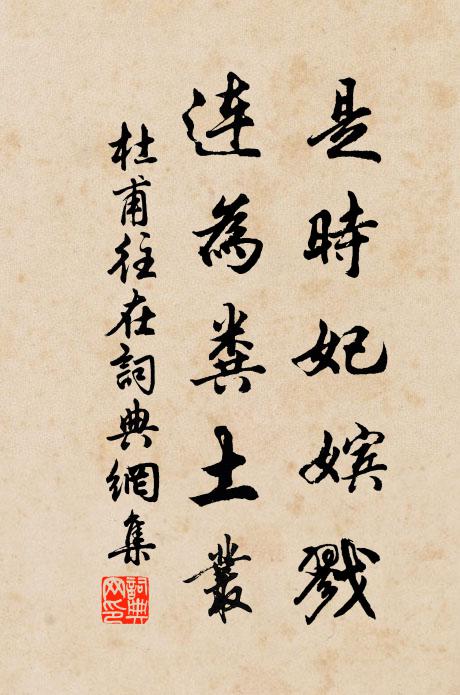 是時妃嬪戮
連為糞土叢
杜甫往在詞典網集
詞典網印